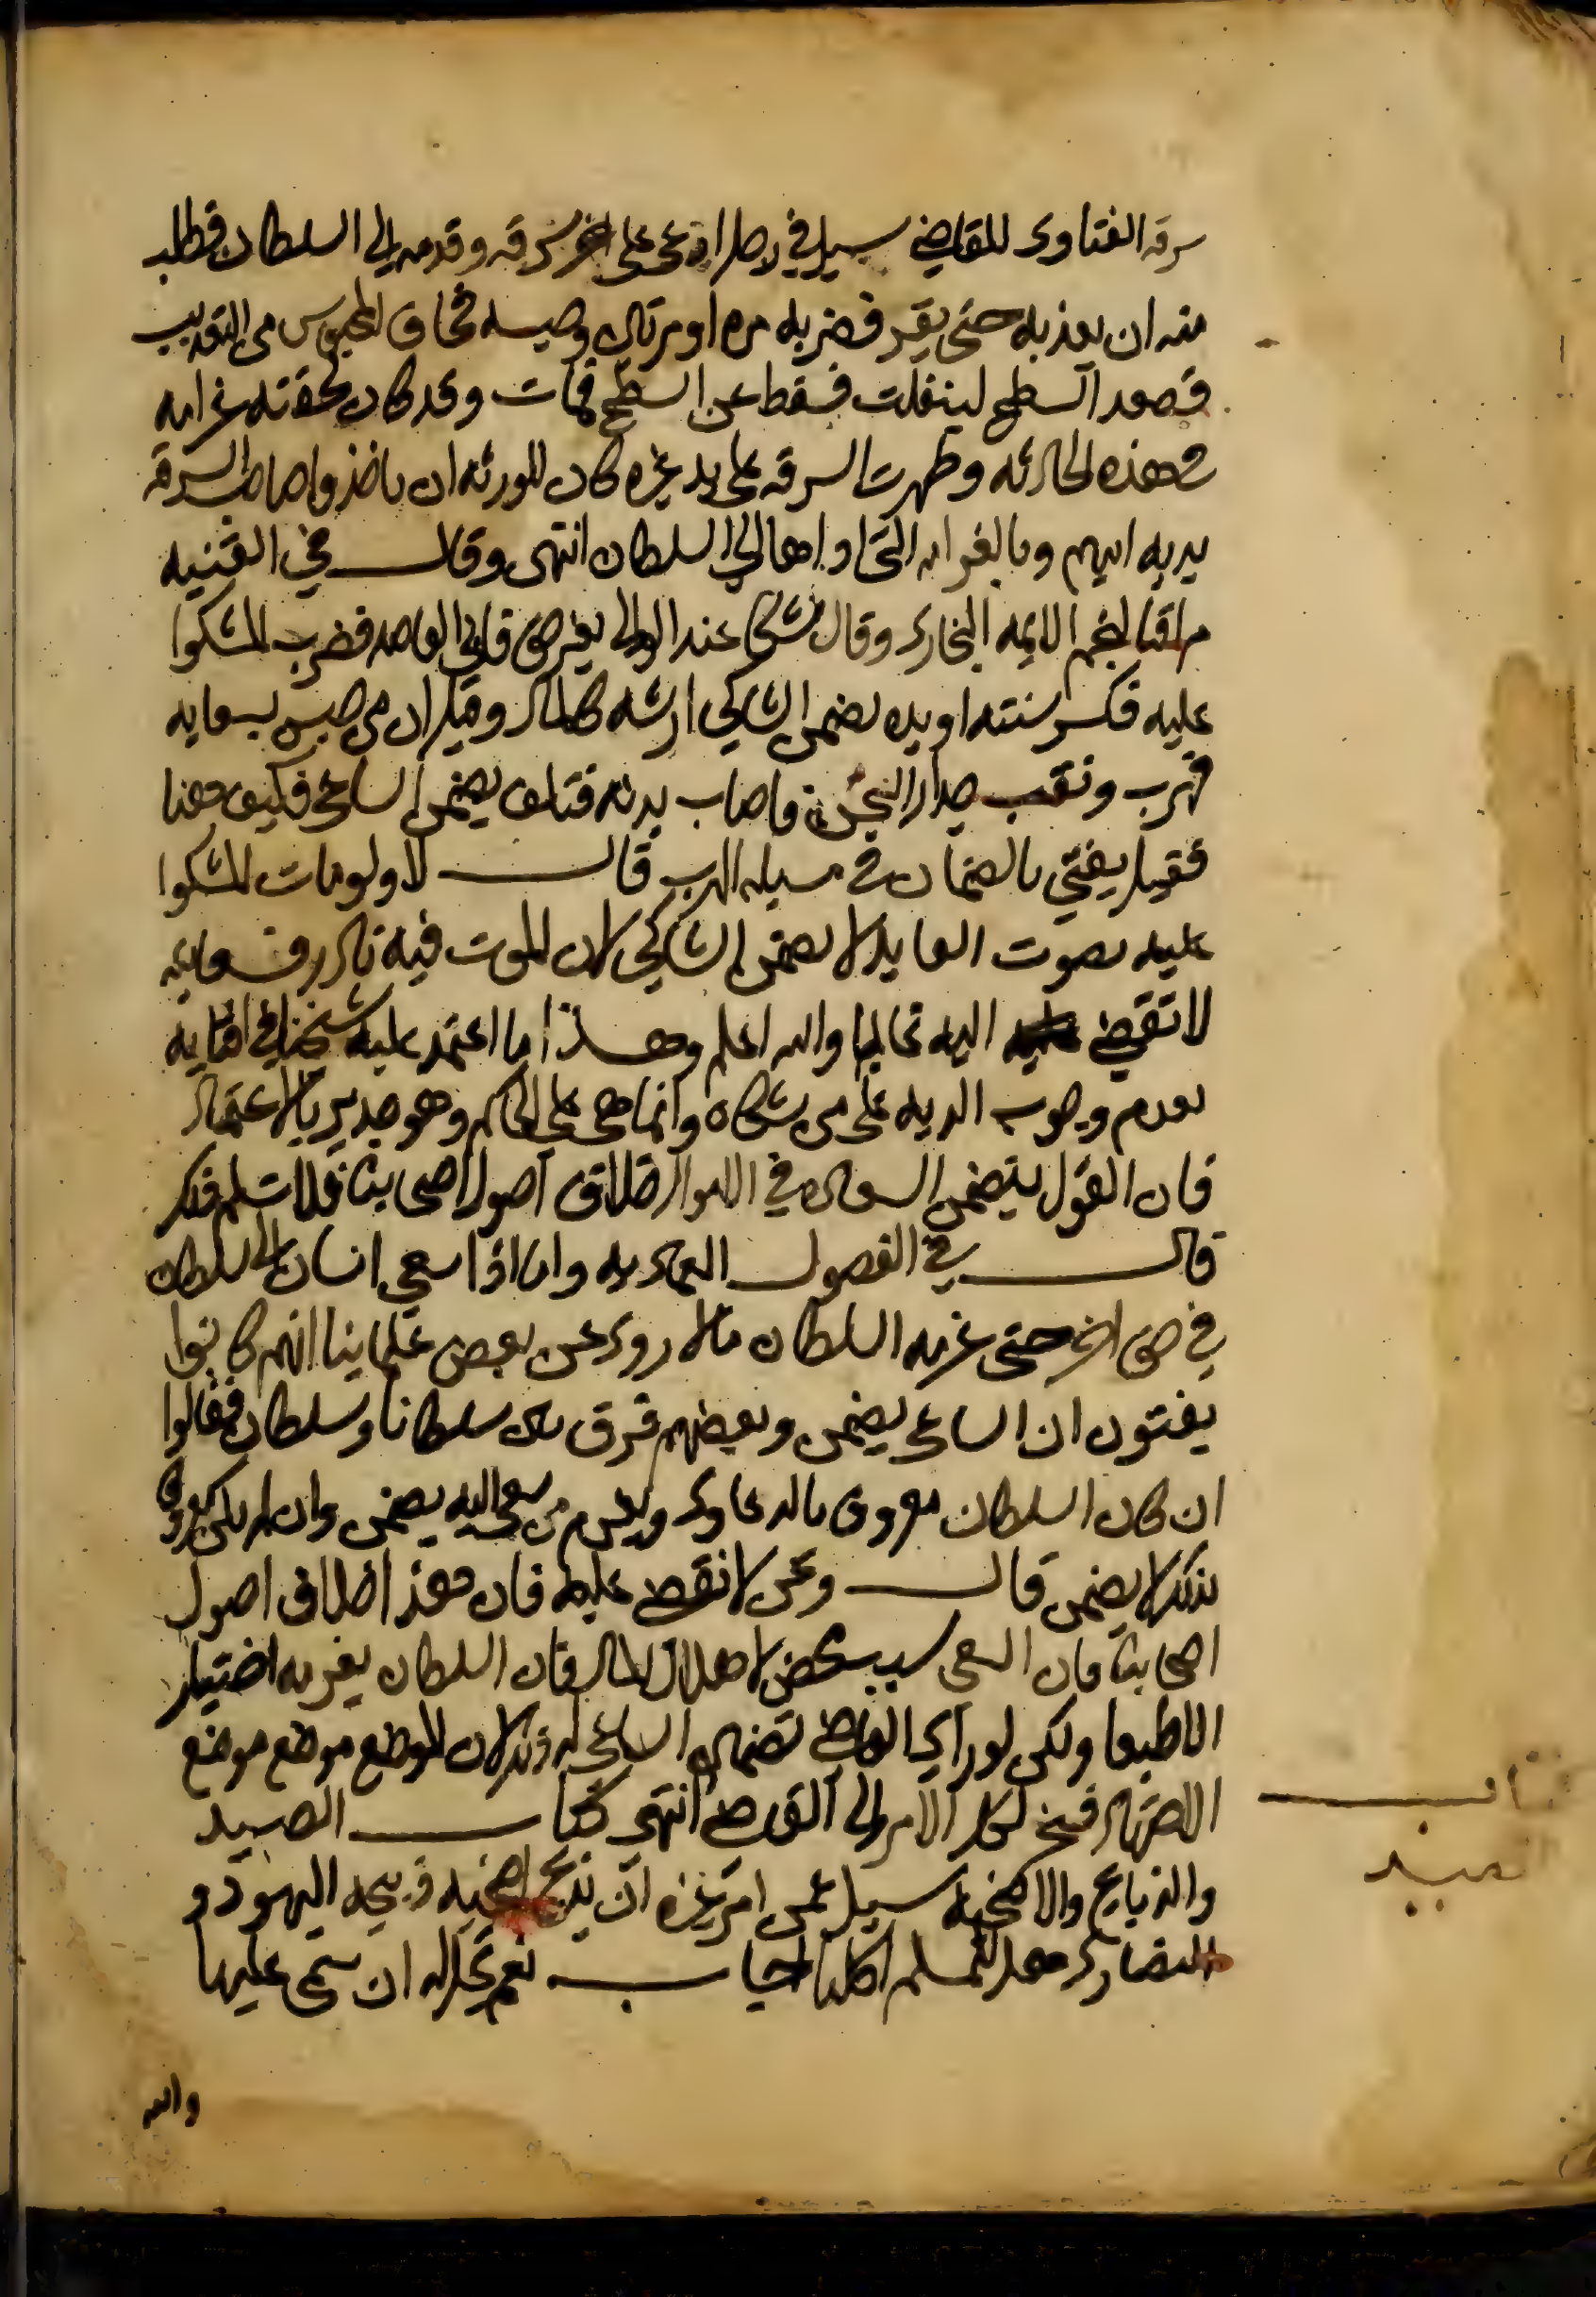 سرقة الفتاوى للقاضي سيل في رجل ادعى على اخر سرقه وقدمه الي السلطان فطلب
منه ان يعذبه حتى يقر فضربه مره او مرتين وحبسه فخاف المحبوس من التعذيب
فصعد السطح لينفلت فسقط عن السطح فمات وقد كان لحقته غرامه
في هذه الحادثه وظهرت السرقه على يد غيره كان للورثه ان ياخذوا صاحب السرقه
بديه ابيهم وبالغرامه التي اداها الي السلطان انتهى وقال في القنيه
شكى عند الوالي بغير حق فاتى القائد فضرب المشكوا
عليه فكسر سنته او يده يضمن الشاكي ارشه كالمال وقيل ان من حبس بسعايه
فهرب ونقب جدار السجن فاصاب بدنه فتلف يضمن الساعي فكيف هنا
فقيل يفتي بالضمان في مسيله الهرب قال لا ولو مات المشكوا
عليه بضرب القايد لا يضمن الشاكي لان الموت فيه نادر وسعايته
لا تفضي اليه غالبا والله اعلم وهذا ما اعتمد عليه شيخنا في افتايه
بعدم وجوب الديه على من شكاه وانما هي على الحاكم وهو جدير بالاعتماد
فان القول بتضمين السعاه في الاموال خلاف اصول اصحابنا
قال في الفصول العماديه واما اذا سعى انسان الى السلطان
في حق اخر حتى غرمه السلطان مالا روى عن بعض علماينا انهم كانوا
يفتون ان الساعي يضمن وبعضهم فرق بين سلطان وسلطان فقالوا
ان كان السلطان معروفا بالدعاوى وتغريم من سعى اليه يضمن وان لم يكن معروفا
بذلك لا يضمن قال ونحن لا نفتى عليه فان هذا خلاف اصول
اصحابنا فان السعي سبب محض لاهلاك المال فان السلطان يغرمه اختيارا
لا طبعا ولكن لو راى القاضي تضمين الساعي له ذلك لان الموضع موضع موضع
الاجتهاد فنحن نكل الامر الى القاضي انتهى كتاب الصيد
والذبايح والاضحيه سيل عمن امر غيره ان يذبح اضحيه ذبيحه اليهود و
النصارى هل للمسلم اكلها اجاب نعم يحل له ان سمى عليها
والله